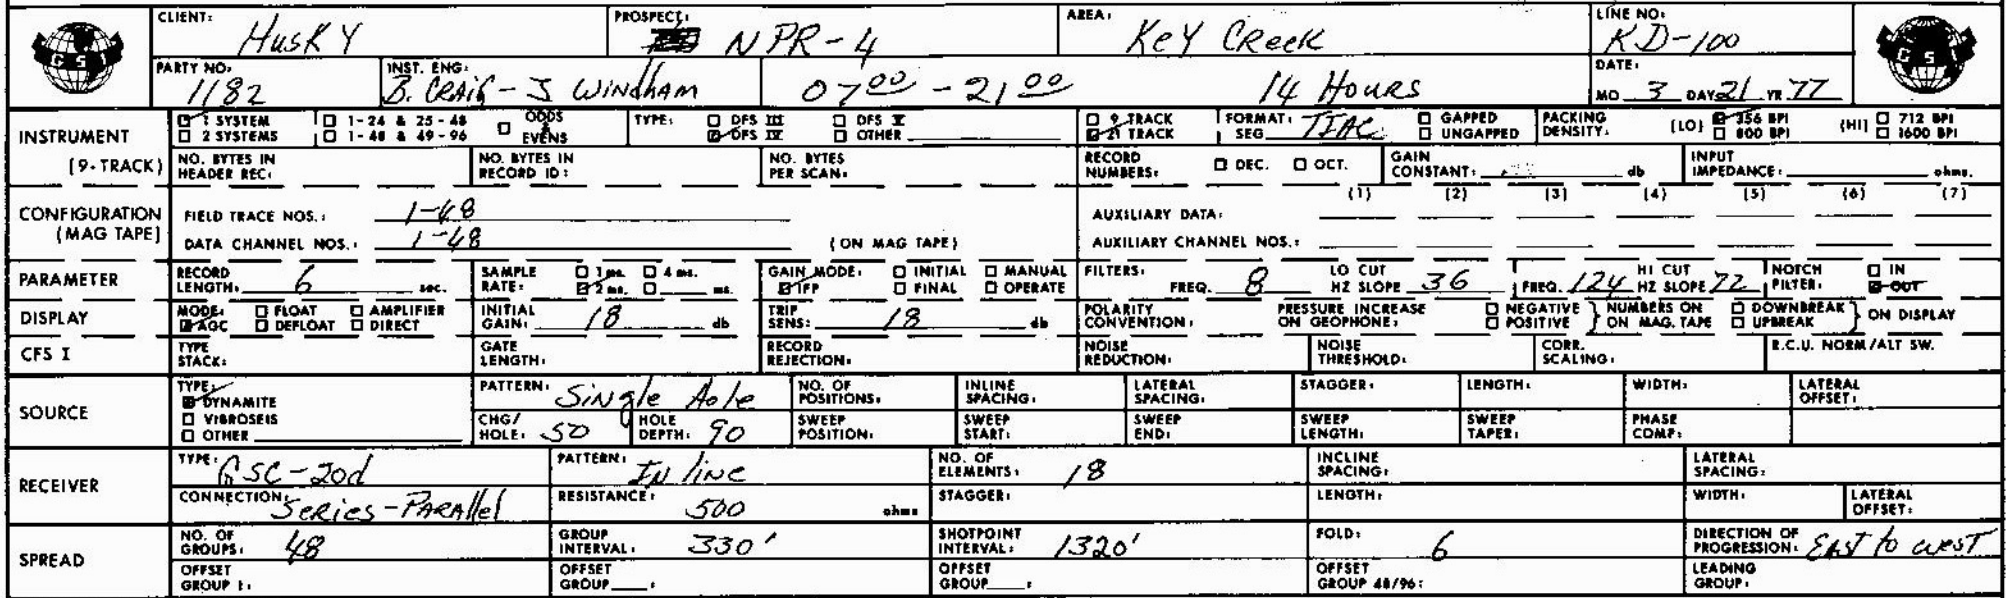 CLIENT: HusKY PROSPECT: NPR-4 AREA: KeY CReeK LINE NO: KD-100
GSI GSI
PARTY NO: 1182 INST. ENG: B. CRAIG - J WINDHAM 07 00 - 21 00 14 HOURS DATE: MO 3 DAY 21 YR 77
INSTRUMENT 1 SYSTEM 1-24 & 25-48 ODDS & EVENS TYPE: DFS III DFS V 9 TRACK FORMAT: GAPPED PACKING DENSITY: (LO) 356 BPI (HI) 712 BPI
2 SYSTEMS 1-48 & 49-96 DFS IV OTHER 21 TRACK SEG TIAC UNGAPPED 800 BPI 1600 BPI
(9-TRACK) NO. BYTES IN HEADER REC: NO. BYTES IN RECORD ID: NO. BYTES PER SCAN: RECORD NUMBERS: DEC. OCT. GAIN CONSTANT: db INPUT IMPEDANCE: ohms.
(1) (2) (3) (4) (5) (6) (7)
CONFIGURATION FIELD TRACE NOS.: 1-48 AUXILIARY DATA:
(MAG TAPE) DATA CHANNEL NOS.: 1-48 (ON MAG TAPE) AUXILIARY CHANNEL NOS.:
PARAMETER RECORD LENGTH: 6 sec. SAMPLE RATE: 1 ms. 4 ms. 2 ms. ms. GAIN MODE: INITIAL MANUAL IFP FINAL OPERATE FILTERS: FREQ. 8 LO CUT HZ SLOPE 36 FREQ. 124 HI CUT HZ SLOPE 72 NOTCH FILTER: IN OUT
DISPLAY MODE: FLOAT AMPLIFIER AGC DEFLOAT DIRECT INITIAL GAIN: 18 db TRIP SENS: 18 db POLARITY CONVENTION: PRESSURE INCREASE ON GEOPHONE: NEGATIVE POSITIVE NUMBERS ON ON MAG. TAPE DOWNBREAK UPBREAK ON DISPLAY
CFS I TYPE STACK: GATE LENGTH: RECORD REJECTION: NOISE REDUCTION: NOISE THRESHOLD: CORR. SCALING: R.C.U. NORM/ALT SW.
SOURCE TYPE: DYNAMITE VIBROSEIS OTHER PATTERN: Single Hole NO. OF POSITIONS: INLINE SPACING: LATERAL SPACING: STAGGER: LENGTH: WIDTH: LATERAL OFFSET:
CHG/HOLE: 50 HOLE DEPTH: 90 SWEEP POSITION: SWEEP START: SWEEP END: SWEEP LENGTH: SWEEP TAPER: PHASE COMP:
RECEIVER TYPE: GSC-20d PATTERN: IN line NO. OF ELEMENTS: 18 INCLINE SPACING: LATERAL SPACING:
CONNECTION: SeRies-PARAllel RESISTANCE: 500 ohms STAGGER: LENGTH: WIDTH: LATERAL OFFSET:
SPREAD NO. OF GROUPS: 48 GROUP INTERVAL: 330' SHOTPOINT INTERVAL: 1320' FOLD: 6 DIRECTION OF PROGRESSION: EAST to west
OFFSET GROUP 1: OFFSET GROUP : OFFSET GROUP : OFFSET GROUP 48/96: LEADING GROUP: